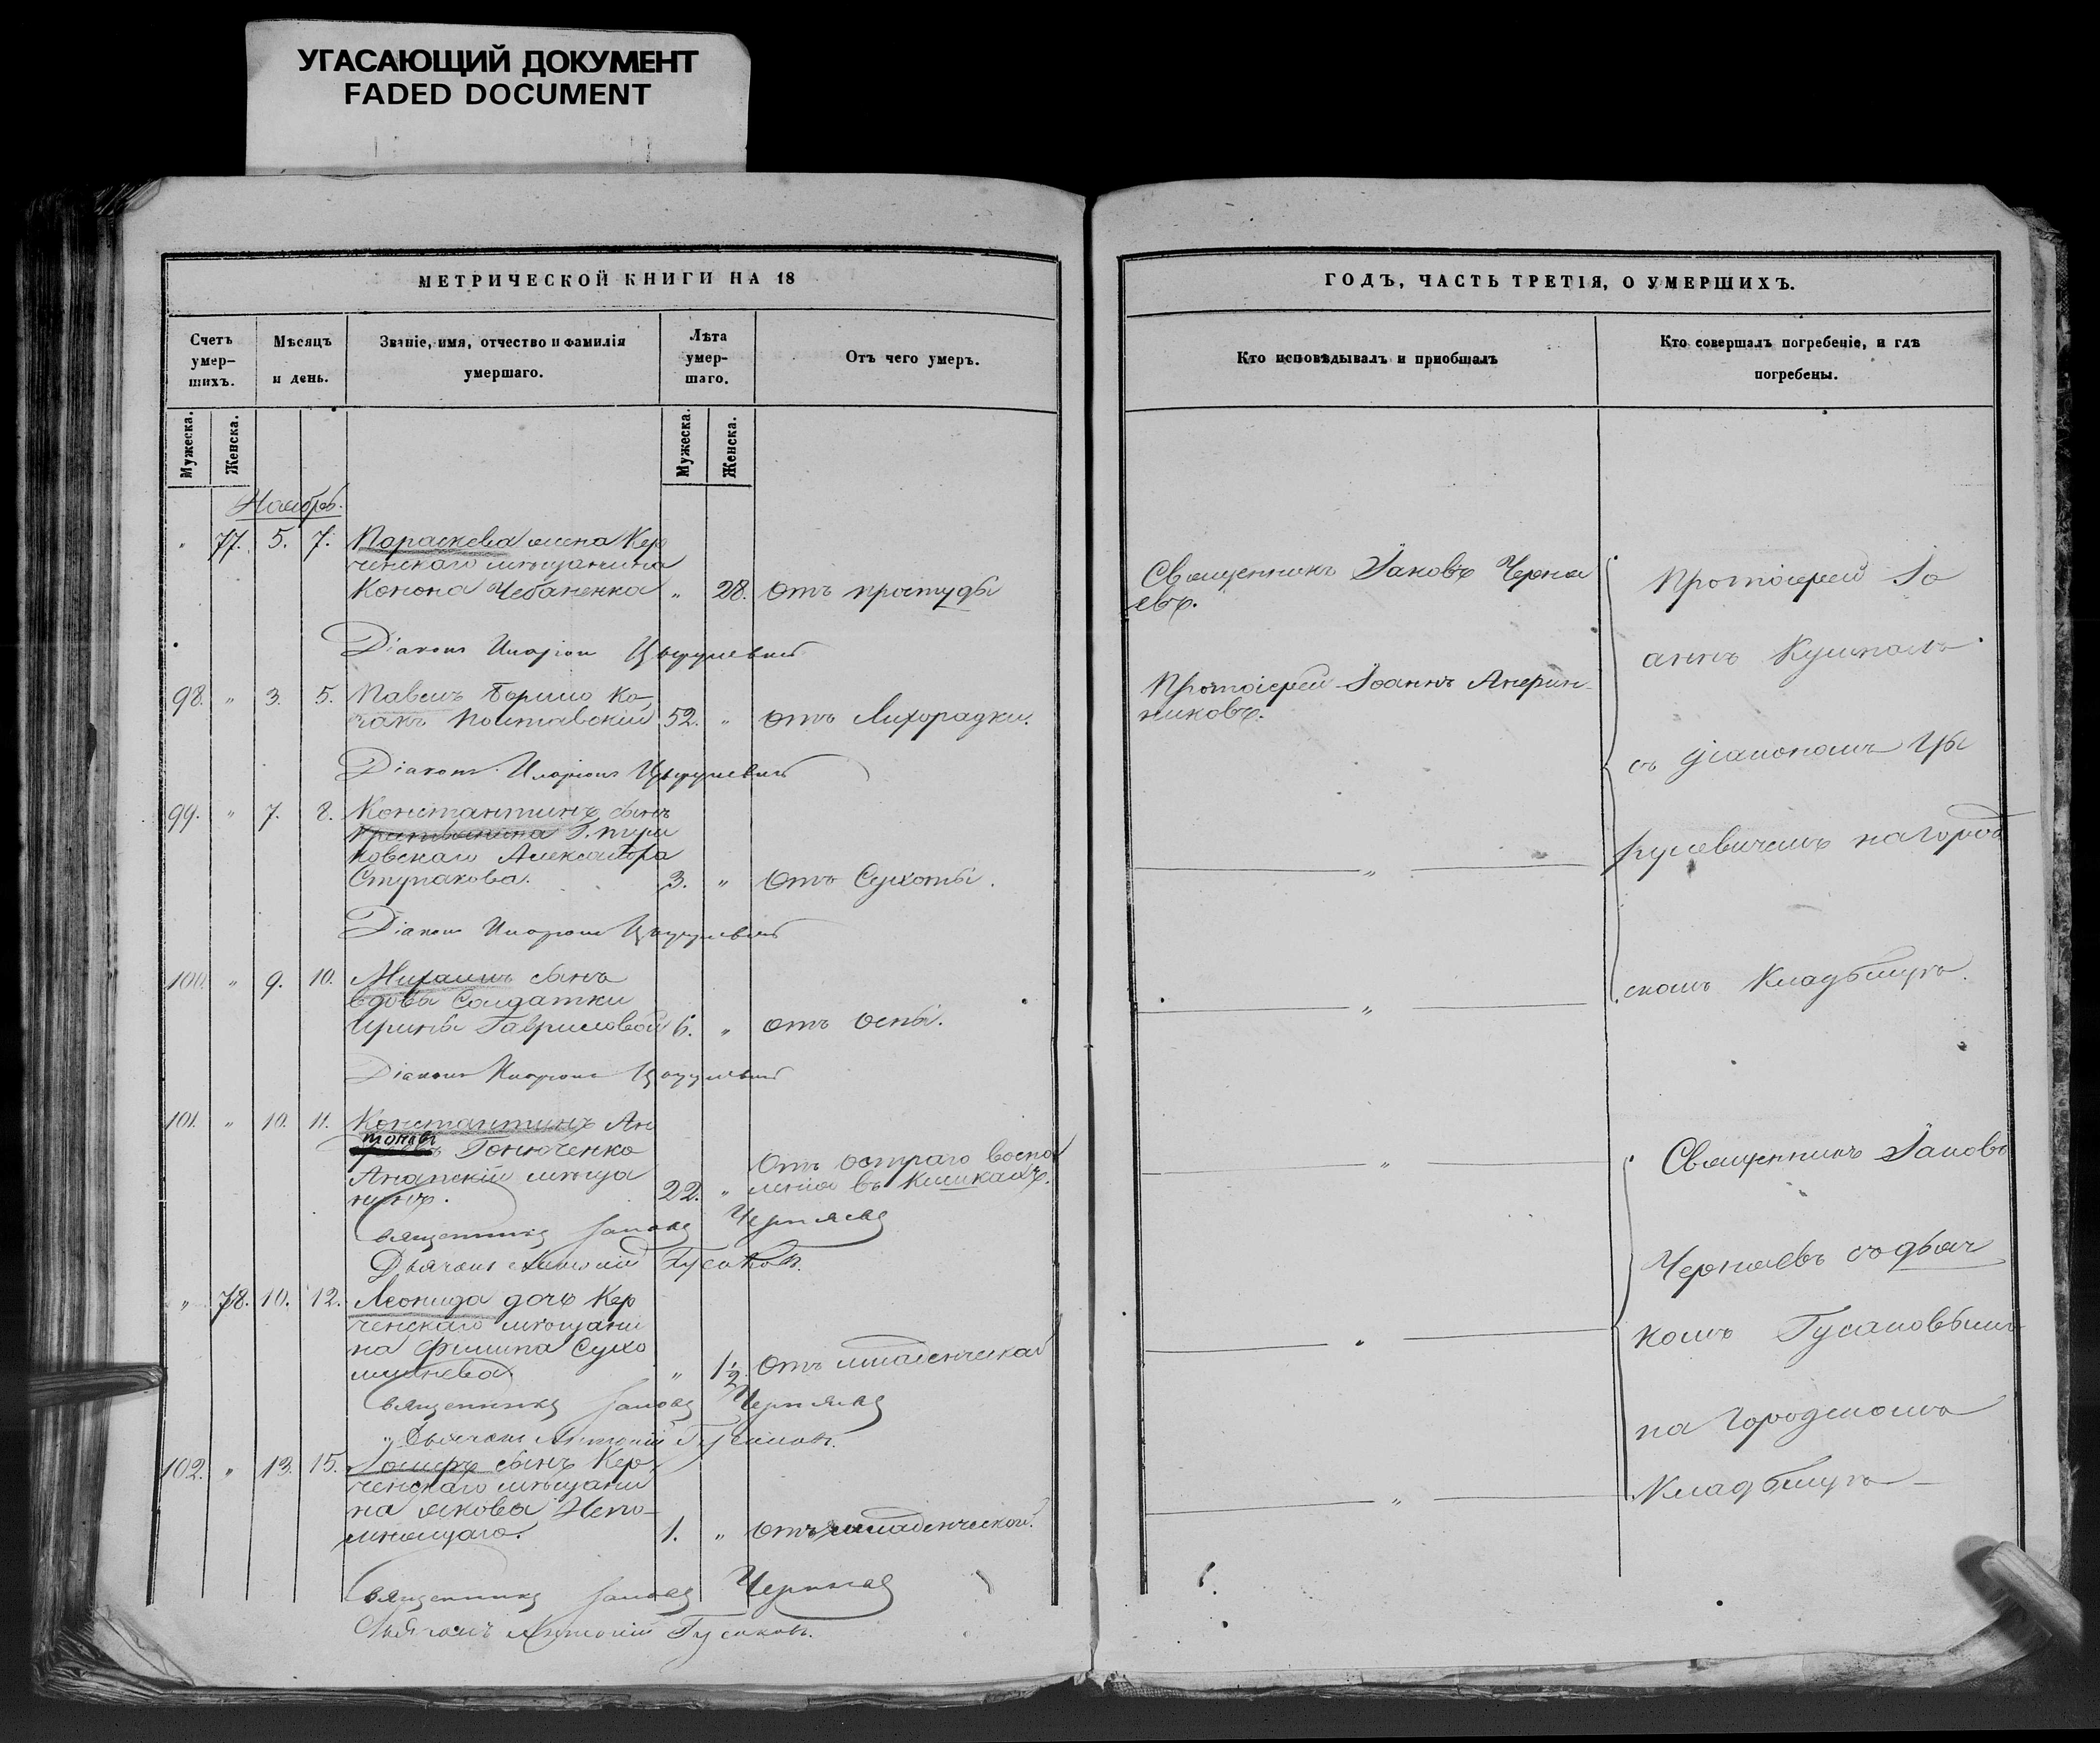 УГАСАЮЩИЙ ДОКУМЕНТ
FADED DOCUMENT
МЕТРИЧЕСКОЙ КНИГИ НА 18
Счетъ умер-шихъ.
Мѣсяцъ и день.
Званіе, имя, отчество и фамилія умершаго.
Лѣта умер-шаго.
Отъ чего умеръ.
Мужеска.
Женска.
Мужеска.
Женска.
Ноябрь.
" 77. 5. 7. Параскева жена Кер
ченскаго мѣщанина
Конона Чебаненка " 28. отъ простуды
Діаконъ Иларіонъ
98. " 3. 5. Павелъ Боршо Ко-
закъ Полтавскій 52. " отъ Лихорадки.
Діаконъ Иларіонъ
99. " 7. 8. Константинъ сынъ
Г. Тури
ковскаго Александра
Ступакова. 3. " отъ Сухоты.
Діаконъ Иларіонъ
100. " 9. 10. Михаилъ сынъ
вдовы Солдатки
Ирины Гавриловой 6. " отъ оспы.
Діаконъ Иларіонъ
101. " 10. 11. Константинъ Ан
тоновъ Гонюченко
Анапскій мѣща
нинъ. 22. " Отъ остраго воспа
ленія въ Кишкахъ.
Священникъ Іаковъ Черняевъ
Дьячокъ Антоній Гусаковъ.
" 78. 10. 12. Леонида дочь Кер
ченскаго мѣщани
на Филипа Сухо
млинева. " 1½ Отъ младенческой
Священникъ Іаковъ Черняевъ
Дьячокъ Антоній Гусаковъ.
102. " 13. 15. сынъ Кер-
ченскаго мѣщани
на Якова Непо-
мнющаго. 1. " отъ младенческой.
Священникъ Іаковъ Черняевъ
Дьячокъ Антоній Гусаковъ.
ГОДЪ, ЧАСТЬ ТРЕТІЯ, О УМЕРШИХЪ.
Кто исповѣдывалъ и пріобщалъ
Кто совершалъ погребеніе, и гдѣ погребены.
Священникъ Іаковъ Черня
евъ.
Протоіерей Іоаннъ Аперин-
никовъ.
"
"
"
"
"
Протоіерей Іо
аннъ
съ діакономъ Цы
рулевичемъ на город
скомъ Кладбищѣ.
Священникъ Іаковъ
Черняевъ съ дьяч
комъ Гусаковымъ
на Городскомъ
Кладбищѣ